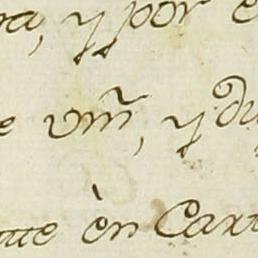 ra, y por
e vm̃, y du
te èn Cart